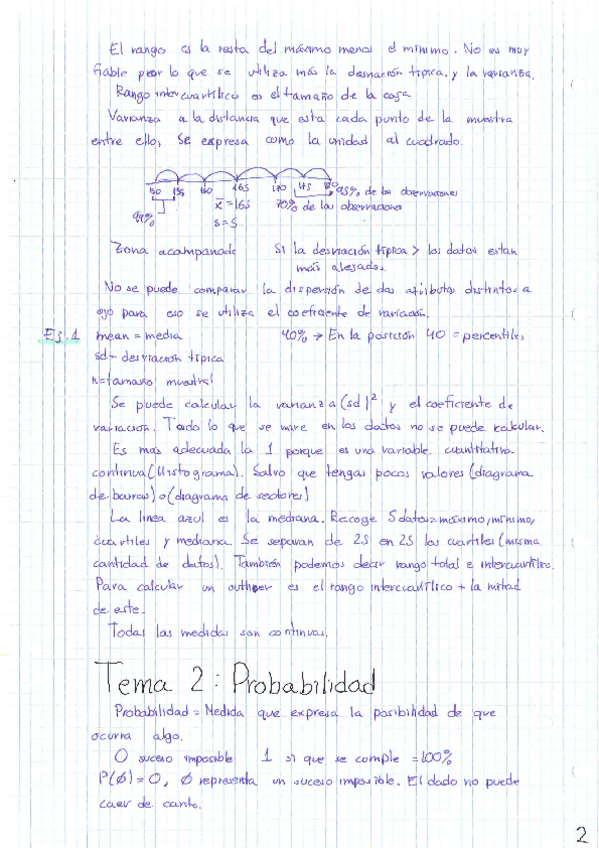 El rango es la resta del máximo menos el mínimo. No es muy
fiable por lo que se utiliza más la desviación típica y la varianza.
Rango intercuartílico es el tamaño de la caja
Varianza a la distancia que esta cada punto de la muestra
entre ello, Se expresa como la unidad al cuadrado.
150 155 160 165 170 175 180 95% de las observaciones
x̄ = 165 70% de las observaciones
s = 5
99%
Zona acampanada Si la desviación típica > los datos estan
más alejados.
No se puede comparar la dispersión de dos atributos distintos a
ojo para eso se utiliza el coeficiente de variación.
Ej.1 mean = media 40% → En la posición 40 = percentiles
sd = desviación típica
n = tamaño muestral
Se puede calcular la varianza (sd)² y el coeficiente de
variación. Todo lo que se mire en los datos no se puede calcular.
Es más adecuada la 1 porque es una variable cuantitativa
continua (Histograma). Salvo que tengas pocos valores (diagrama
de barras) o (diagrama de sectores)
La linea azul es la mediana. Recoge 5 datos = máximo, mínimo,
cuartiles y mediana. Se separan de 25 en 25 los cuartiles (misma
cantidad de datos). También podemos decir rango total e intercuartílico.
Para calcular un outlier es el rango intercuartílico + la mitad
de este.
Todas las medidas son continuas.
Tema 2: Probabilidad
Probabilidad = Medida que expresa la posibilidad de que
ocurra algo.
0 suceso imposible 1 si que se cumple = 100%
P(Ø) = 0, Ø representa un suceso imposible. El dado no puede
caer de canto.
2